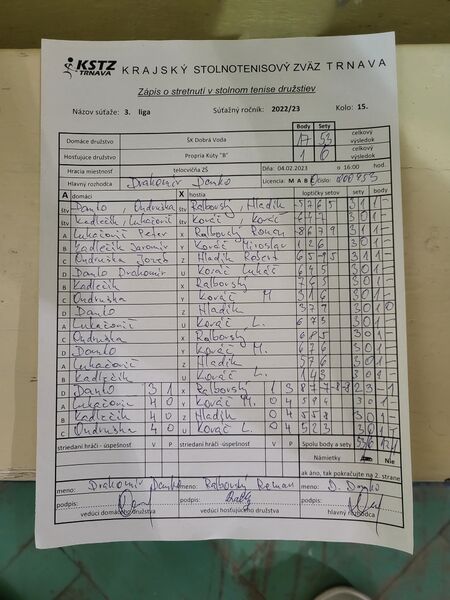 KSTZ TRNAVA KRAJSKÝ STOLNOTENISOVÝ ZVÄZ TRNAVA
Zápis o stretnutí v stolnom tenise družstiev
Názov súťaže: 3. liga Súťažný ročník: 2022/23 Kolo: 15.
Body Sety
Domáce družstvo ŠK Dobrá Voda 17 53 celkový výsledok
Hosťujúce družstvo Propria Kuty "B" 1 6 celkový výsledok
Hracia miestnosť telocvičňa ZŠ Dňa: 04.02.2023 o 16:00 hod.
Hlavný rozhodca Drahomír Danko Licencia: M A B C číslo:
A domáci X hostia loptičky setov sety body
štv Danko, Ondruška štv Ralbovský, Hladík 5 7 6 5 3 1 1 -
štv Kadlečík, Lukačovič štv Kováč, Kováč 6 4 7 3 0 1 -
A Lukačovič Peter X Ralbovský Roman 3 1 1 -
B Kadlečík Jaromír Y Kováč Miroslav 1 2 6 3 0 1 -
C Ondruška Z Hladík Robert 3 1 1 -
D Danko Drahomír U Kováč Lukáš 6 4 5 3 0 1 -
B Kadlečík X Ralbovský 7 6 3 3 0 1 -
C Ondruška Y Kováč M 3 1 6 3 0 1 -
D Danko Z Hladík 3 7 9 3 0 1
A Lukačovič U Kováč L. 3 0 1 -
C Ondruška X Ralbovský 6 8 5 3 0 1 -
D Danko Y Kováč M. 3 0 1 -
A Lukačovič Z Hladík 3 0 1 -
B Kadlečík U Kováč L. 1 4 3 3 0 1 -
D Danko 3 1 X Ralbovský 1 3 2 3 - 1
A Lukačovič 4 0 Y Kováč M. 0 4 5 9 4 3 0 1 -
B Kadlečík 4 0 Z Hladík 0 4 5 5 8 3 0 1 -
C Ondruška 4 0 U Kováč L. 0 4 5 2 3 3 0 1 -
striedaní hráči - úspešnosť V P striedaní hráči - úspešnosť V P Spolu body a sety
Námietky Nie
ak áno, tak pokračujte na 2. strane
meno: Drahomír Danko meno: Ralbovský Roman meno: D. Danko
podpis: podpis: podpis:
vedúci domáceho družstva vedúci hosťujúceho družstva hlavný rozhodca